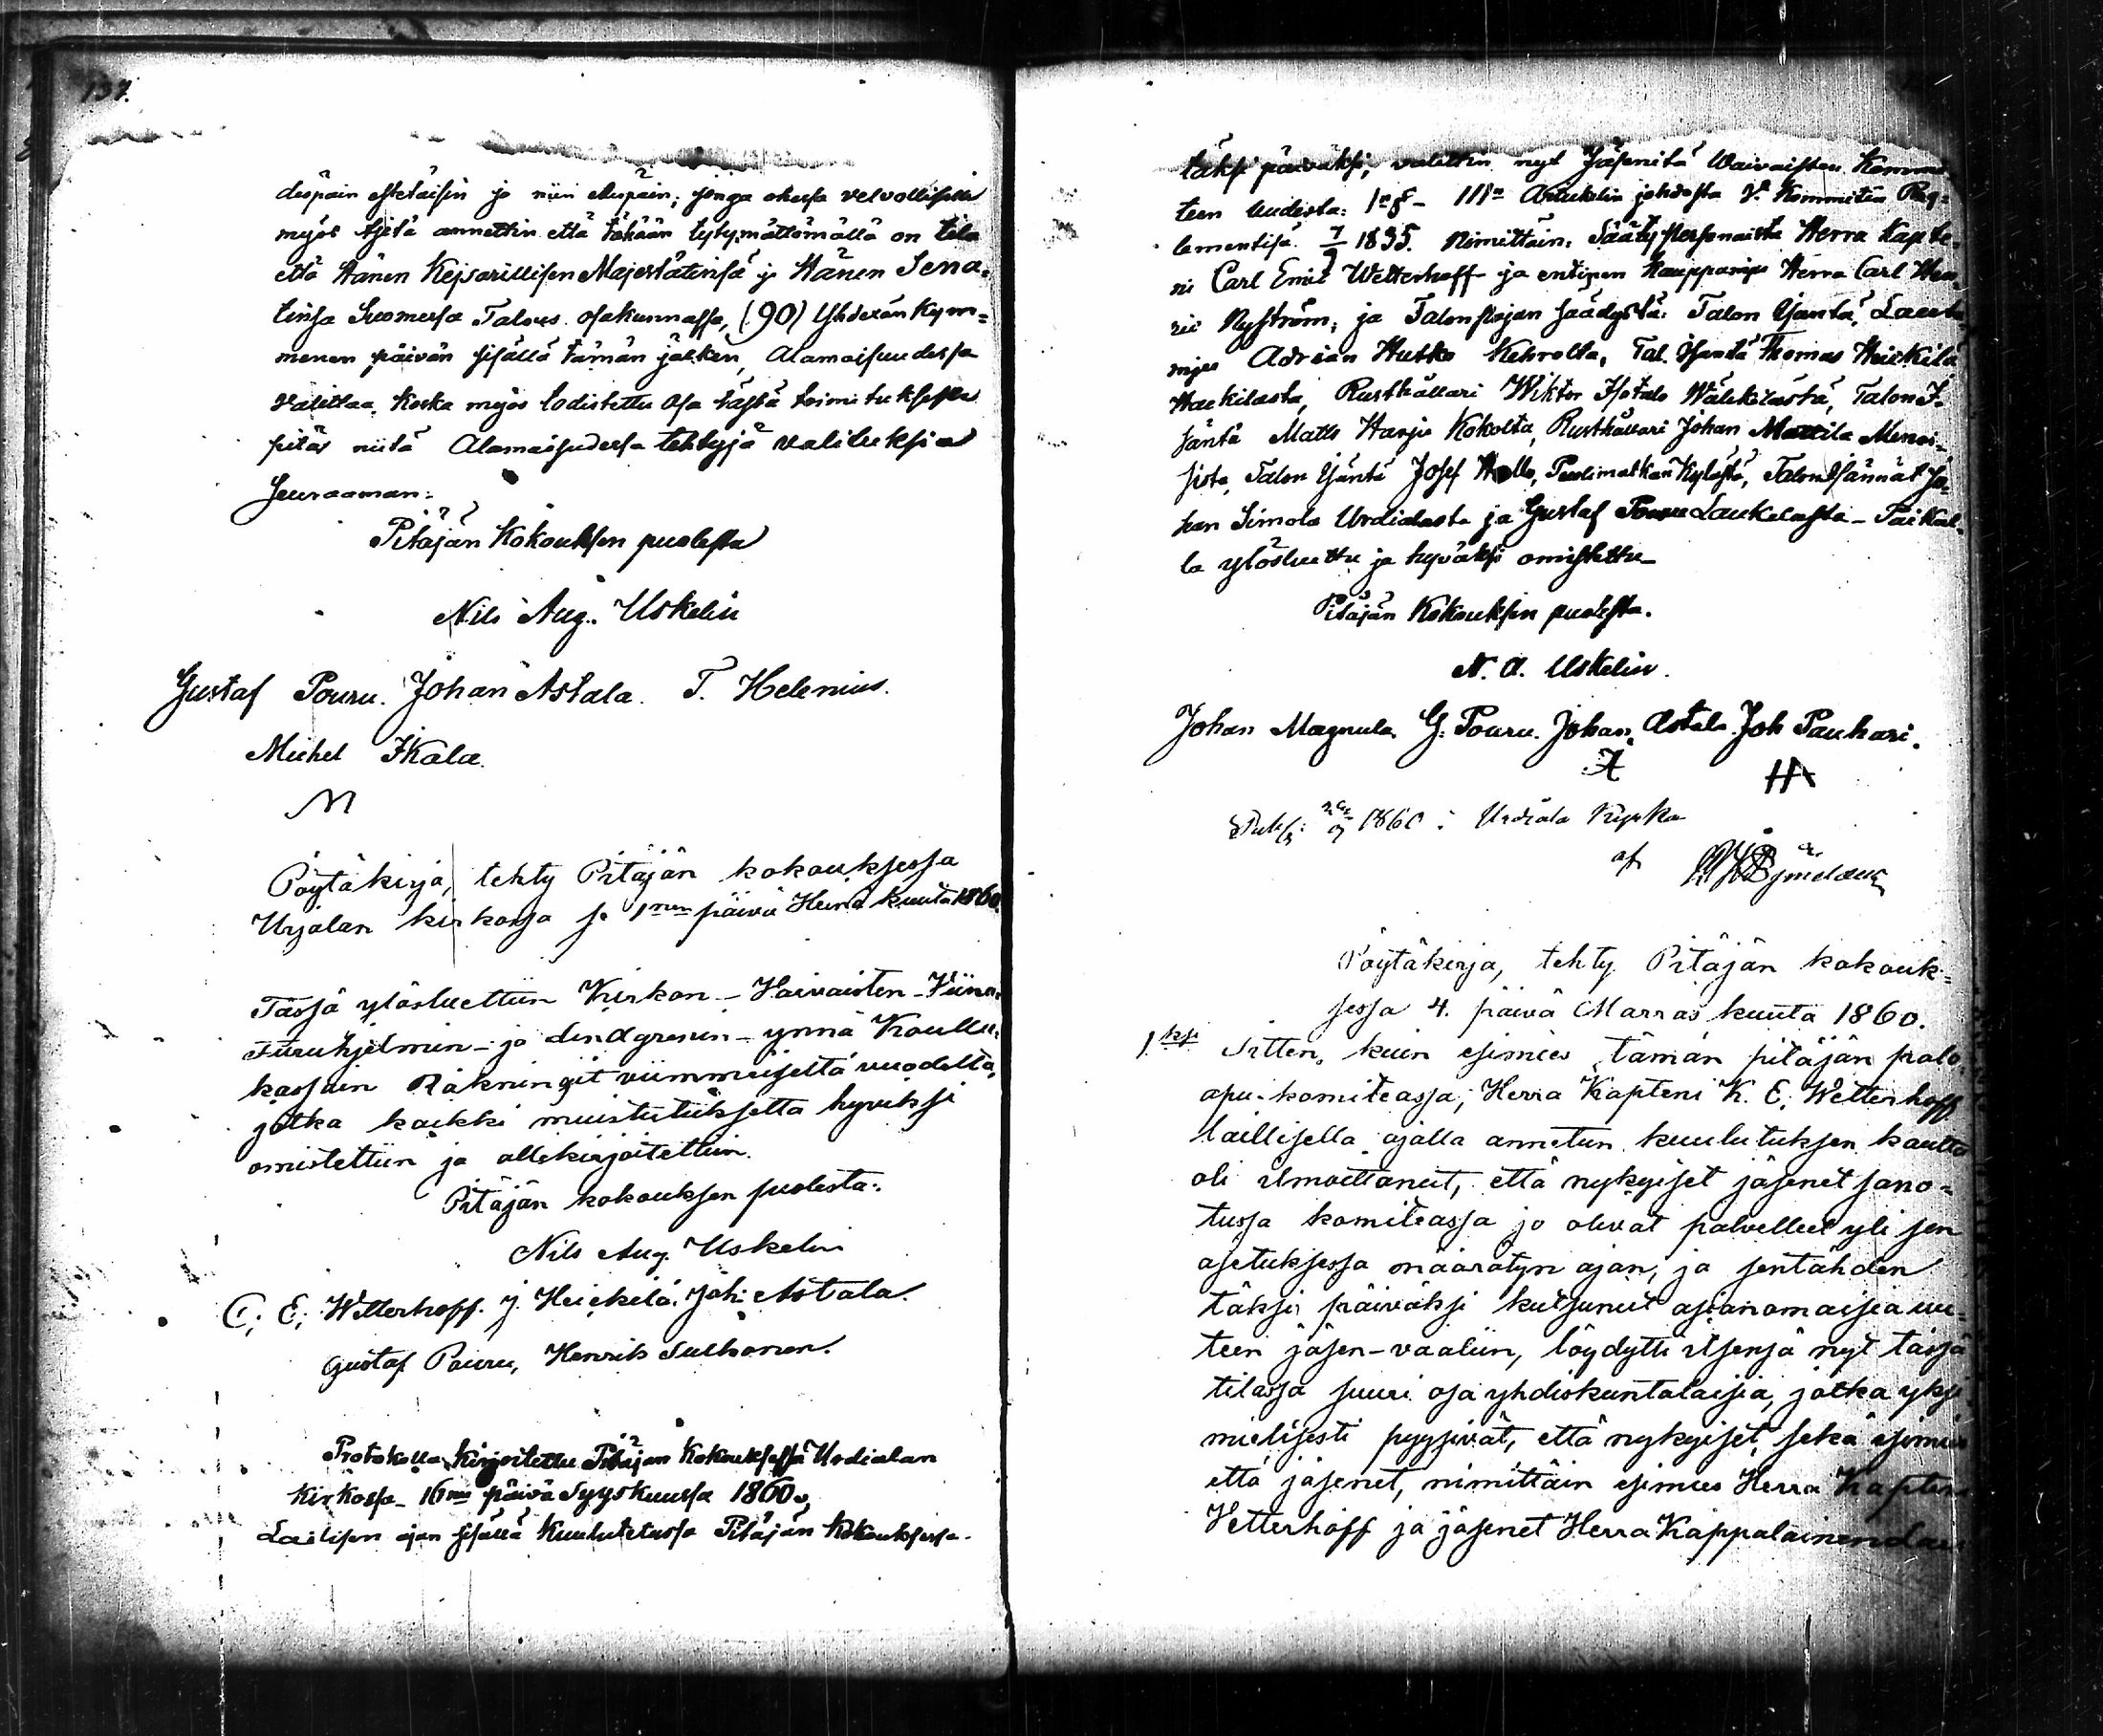 137.
despäin estetäisin ja niin edespäin; jonga ohessa velvollisille
myös tietä annettin että tähään tytymättömällä on tila
että Hänen Kejsarillisen Majestätinsä ja Hänen Sena=
tinsa Suomessa Talous osakunnassa, (90) Yhdexän kym=
menen päivän sisällä tämän jälken, Alamaisuudessa
valittaa, koska myös todistettu osa tästä toimituksesta
pitää niitä Alamaisudessa tehtyjä valituksia
seuraaman:
Pitäjän Kokouksen puolesta
Nils Aug. Uskelin
Gustaf Pouru. Johan Astala. T. Helenius.
Michel Ikala.
M
Pöytäkirja, tehty Pitäjän kokouksessa
Urjalan kirkossa se 1nen päivä Heinä kuuta 1860.
Tässä ylösluettiin Kirkon- Vaivaisten- Viina-
Furuhjelmin- ja Lindgrenin- ynnä Koulu-
kassain Räkningit viimmeiseltä vuodelta,
jotka kaikki muistutuksetta hyväksi
omistettiin ja allekirjoitettiin.
Pitäjän kokouksen puolesta:
Nils Aug. Uskelin
C. E. Wetterhoff. J. Heickilä. Joh: Astala.
Gustaf Pouru, Henrik Sulkonen.
Protokolla Kirjoitettu Pitäjän Kokouksessa Urdialan
Kirkossa 16na päivä Syyskuussa 1860.
Laillisen ajan sisällä Kuulutetussa Pitäjän Kokouksessa
täksi päiväksi, valittin nyt Jäsenitä Waivaisten Kommi
teen Uudesta: 1n § - IIIn Artikelin johdosta Kommiten Reg=
lementisä 1835. Nimittäin: Sääty Persoonaista Herra Kapte-
ni Carl Emil Wetterhoff ja entinen Kauppamies Herra Carl Hen
ric Nyström; ja Talonpojan säädystä: Talon Isäntä, Lauta
mies Adrian Hutko Kehrolta, Tal. Isäntä Thomas Heickilä
Hackilasta, Rusthållari Wiktor Isotalo Wälckilästä, Talon I-
säntä Matts Harju Kokolta, Rusthållari Johan Mattila Menoi-
sista, Talon Isäntä Josef Hollo, Puolimatkan Kylästä, Talon Isännät Jo-
han Simola Urdialasta ja Gustaf Pouru Laukelasta - Paikal-
la ylösluettu ja hyväksi omistettu-
Pitäjän Kokouksen puolesta.
N. A. Uskelin.
Johan Magnula. G. Pouru. Johan Astala. Joh Pauhari.
A HA
1860 i Urdiala Kyrka
af
Pöytäkirja, tehty Pitäjän kokouk-
sessa 4. päivä Marras kuuta 1860.
1.ksi Sitten, kuin esimies tämän pitäjän palo-
apu-komiteassa, Herra Kapteni K. E. Wetterhoff
laillisella ajalla annetun kuulutuksen kautta
oli ilmoittanut, että nykyiset jäsenet sano-
tussa komiteassa jo olivat palvelleet yli sen
asetuksessa määrätyn ajan, ja sentähden
täksi päiväksi kutsunut asianomaisia uu-
teen jäsen-vaaliin, löydytti itsensä nyt tässä
tilassa suuri osa yhdiskuntalaisia, jotka yksi
mielisesti pyysivät, että nykyiset, sekä esimies
että jäsenet, nimittäin esimies Herra Kapteni
Vetterhoff ja jäsenet Herra Kappalainen